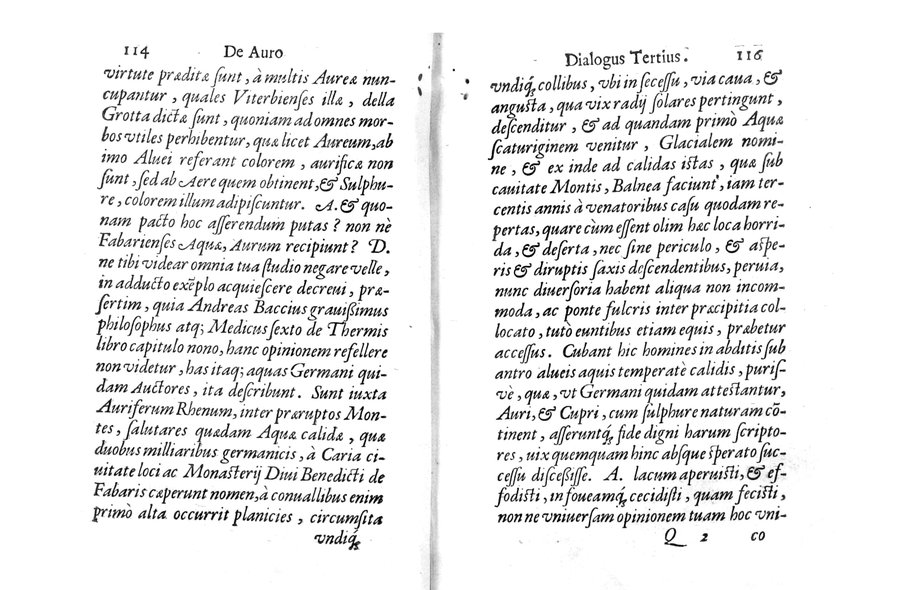 114 De Auro
virtute præditæ ſunt, à multis Aureæ nun-
cupantur, quales Viterbienſes illæ, della
Grotta dictæ ſunt, quoniam ad omnes mor-
bos vtiles perhibentur, quæ licet Aureum, ab
imo Aluei referant colorem, aurificæ non
ſunt, ſed ab Aere quem obtinent, & Sulphu-
re, colorem illum adipiſcuntur. A. & quo-
nam pacto hoc aſſerendum putas? non nè
Fabarienſes Aquæ, Aurum recipiunt? D.
ne tibi videar omnia tua ſtudio negare velle,
in adducto exẽplo acquieſcere decreui, præ-
ſertim, quia Andreas Baccius grauiſſimus
philoſophus atq; Medicus ſexto de Thermis
libro capitulo nono, hanc opinionem refellere
non videtur, has itaq; aquas Germani qui-
dam Auctores, ita deſcribunt. Sunt iuxta
Auriferum Rhenum, inter præruptos Mon-
tes, ſalutares quædam Aquæ calidæ, quæ
duobus milliaribus germanicis, à Caria ci-
uitate loci ac Monaſterij Diui Benedicti de
Fabaris cæperunt nomen, à conuallibus enim
primò alta occurrit planicies, circumſita
vndiq;
Dialogus Tertius. 116
vndiq; collibus, vbi in ſeceſſu, via caua, &
anguſta, qua vix radij ſolares pertingunt,
deſcenditur, & ad quandam primò Aquæ
ſcaturiginem venitur, Glacialem nomi-
ne, & ex inde ad calidas iſtas, quæ ſub
cauitate Montis, Balnea faciunt, iam ter-
centis annis à venatoribus caſu quodam re-
pertas, quare cùm eſſent olim hæc loca horri-
da, & deſerta, nec ſine periculo, & aſpe-
ris & diruptis ſaxis deſcendentibus, peruia,
nunc diuerſoria habent aliqua non incom-
moda, ac ponte fulcris inter præcipitia col-
locato, tutò euntibus etiam equis, præbetur
acceſſus. Cubant hic homines in abditis ſub
antro alueis aquis temperatè calidis, puriſ-
vè, quæ, vt Germani quidam atteſtantur,
Auri, & Cupri, cum ſulphure naturam cõ-
tinent, aſſeruntq; fide digni harum ſcripto-
res, uix quemquam hinc abſque ſperato ſuc-
ceſſu diſceſſiſſe. A. lacum aperuiſti, & ef-
fodiſti, in foueamq; cecidiſti, quam feciſti,
non ne vniuerſam opinionem tuam hoc vni-
Q 2 co